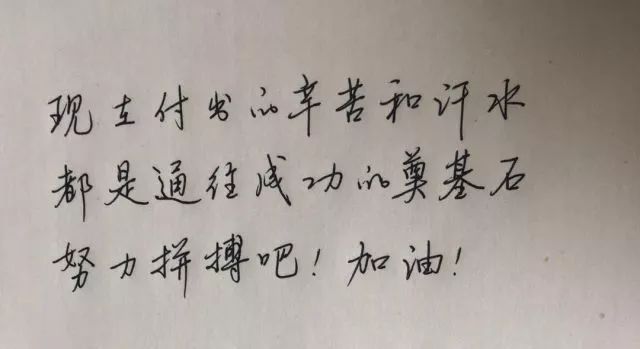 现在付出的辛苦和汗水
都是通往成功的奠基石
努力拼搏吧！加油！